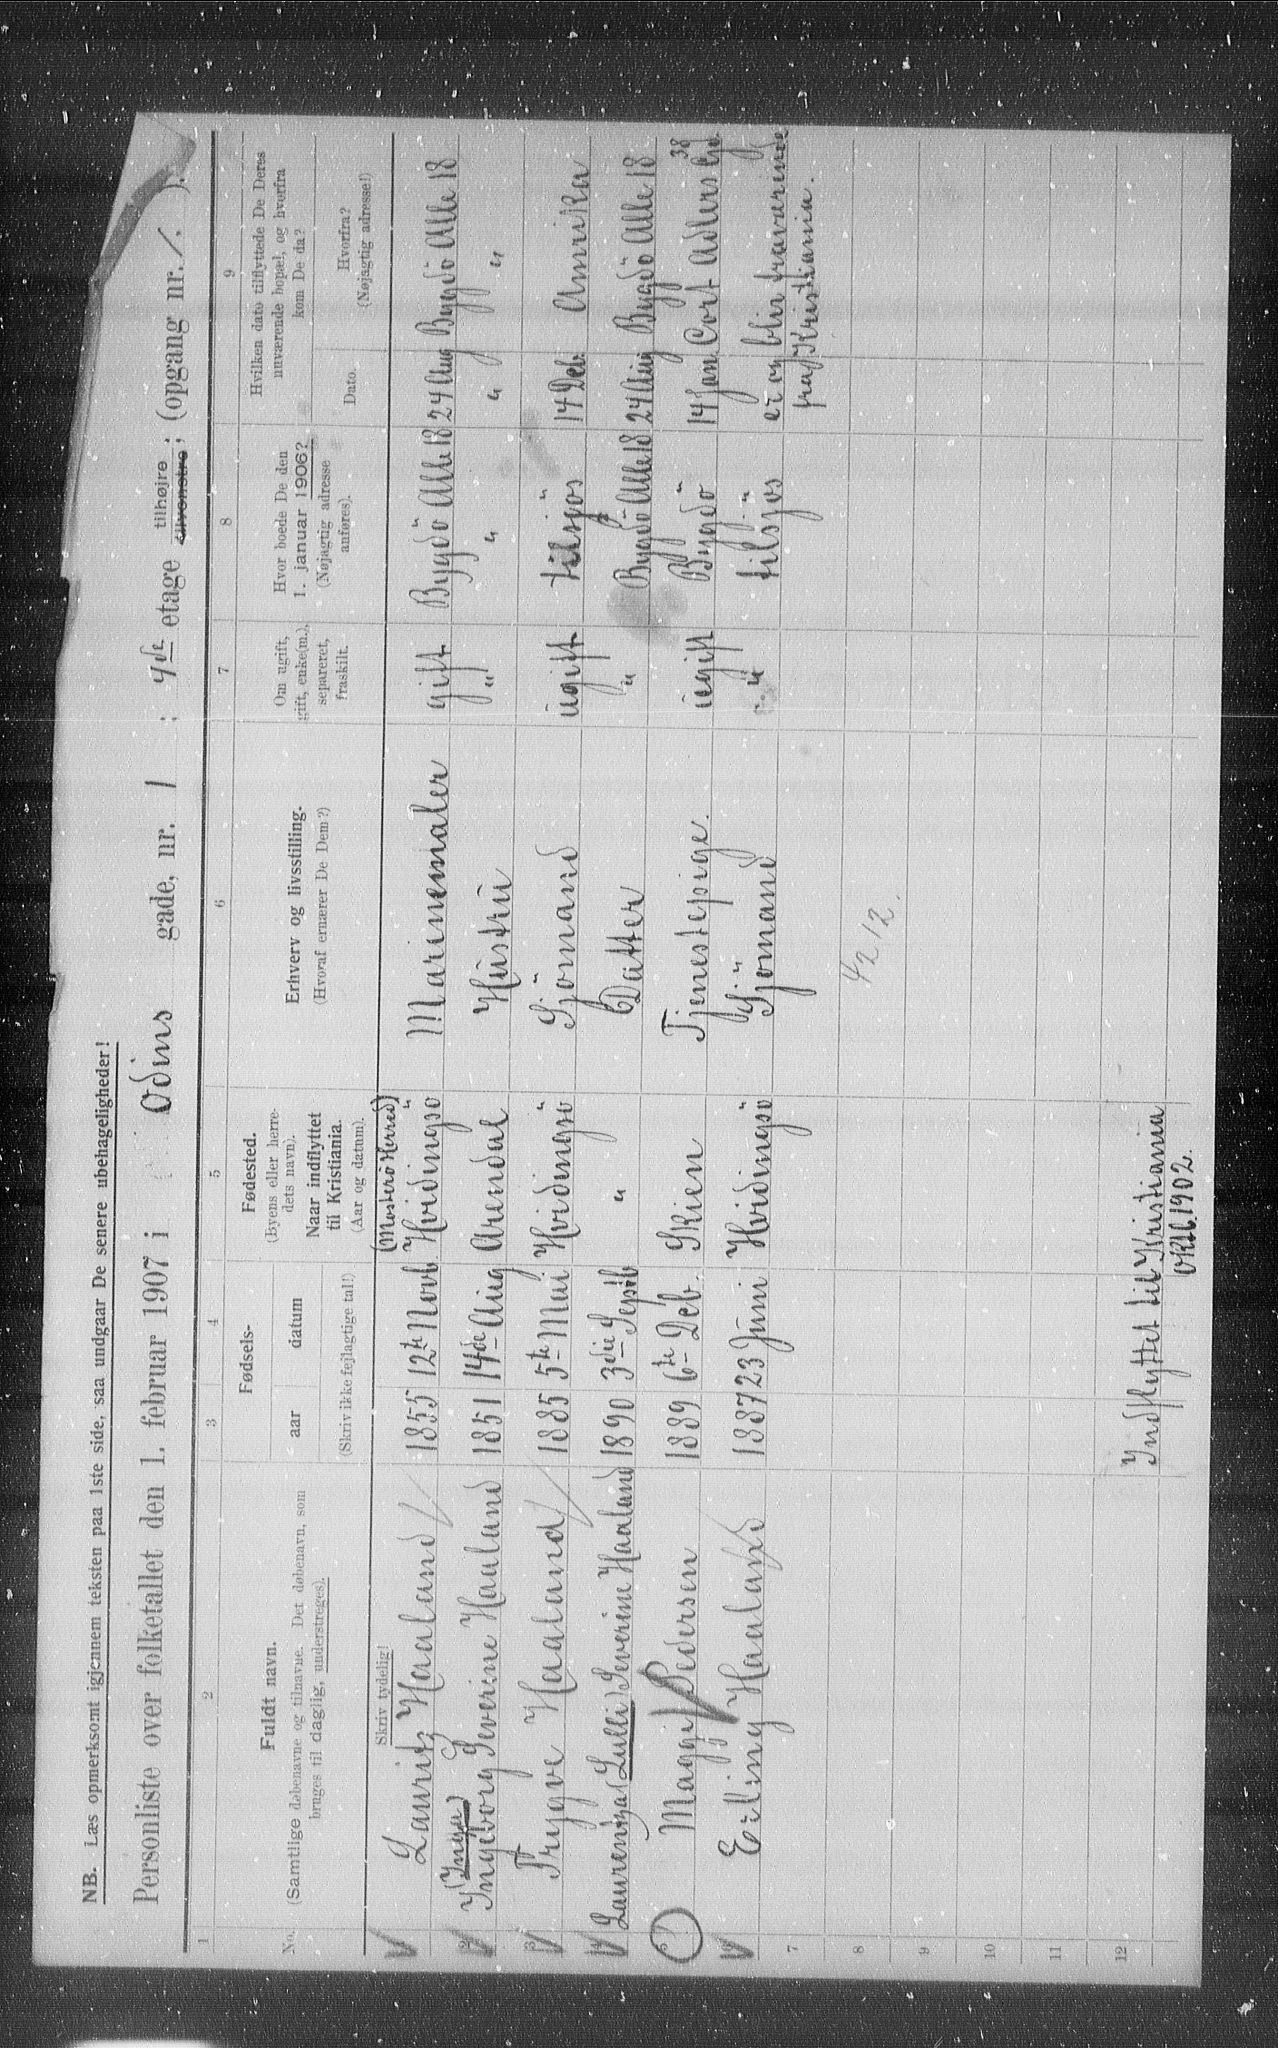 NB. Læs opmerksomt igjennem teksten paa 1ste side, saa undgaar De senere ubehageligheder!
Personliste over folketallet den 1. februar 1907 i Odins gade, nr. 1 ; 4de etage tilhøjre tilvenstre ; (opgang nr. /. ).
1 2 3 4 5 6 7 8 9
No. Fuldt navn. (Samtlige døbenavne og tilnavne. Det døbenavn, som bruges til daglig, understreges).
Fødsels- aar datum (Skriv ikke fejlagtige tal!)
Fødested. (Byens eller herredets navn). Naar indflyttet til Kristiania. (Aar og datum).
Erhverv og livsstilling. (Hvoraf ernærer De Dem?)
Om ugift, gift, enke(m.), separeret, fraskilt.
Hvor boede De den 1. januar 1906? (Nøjagtig adresse anføres).
Hvilken dato tilflyttede De Deres nuværende bopæl, og hvorfra kom De da?
Dato. Hvorfra? (Nøjagtig adresse!)
Skriv tydelig!
(Mosterö Herred)
Lauritz Haaland 1855 12te Novb. Hvidingsö Marinemaler gift Bygdö Alle 18 24 Aug Bygdö Alle 18
(Inga)
2 Ingeborg Severine Haaland 1851 14de Aug Arendal Hustru " " " "
3 Trygve Haaland 1885 5te Mai Hvidingsö Sjömand ugift tilsjös 14 Deb. Amrika
4 Laurentza (Lulli) Severine Haaland 1890 3die Septb " Datter " Bygdö Alle 18 24 Aug Bygdö Alle 18
Maggi Pedersen 1889 6te Deb. Skien Tjenestepige. ugift Bygdö 14 Jan. Cort Adlers Gd. 38
Erling Haaland 1887 23 Juni Hvidingsö Sjömand " tilsjös er og blir fraværende
fra Kristiania.
7
8 4/2 12.
9
10
11
12 Indflyttet til Kristiania
oktb. 1902.